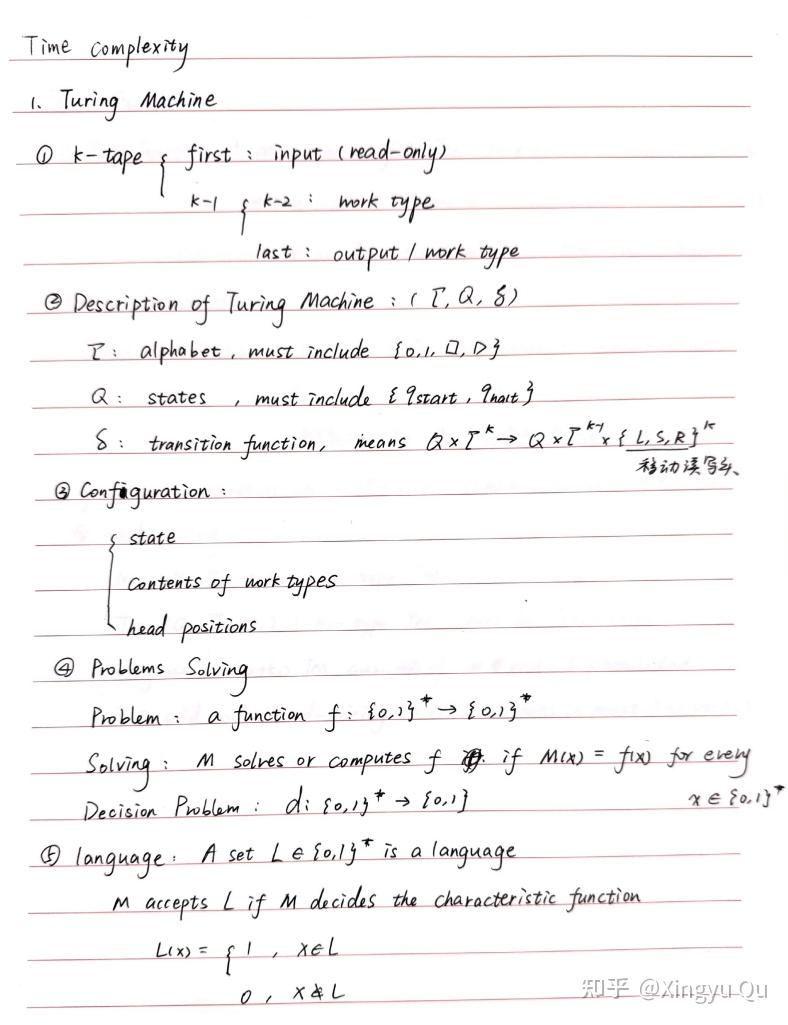 Time Complexity
1. Turing Machine
① k-tape { first : input (read-only)
k-1 { k-2 : work type
last : output / work type
② Description of Turing Machine : (Γ, Q, δ)
Γ : alphabet, must include {0,1,□,▷}
Q : states , must include {qstart, qhalt}
δ : transition function, means Q×Γ^k → Q×Γ^k-1 × {L,S,R}^k
移动读写头、
③ Configuration :
{ state
contents of work types
head positions
④ Problems Solving
Problem : a function f : {0,1}* → {0,1}*
Solving : M solves or computes f if M(x) = f(x) for every
x ∈ {0,1}*
Decision Problem : d: {0,1}* → {0,1}
⑤ language : A set L ∈ {0,1}* is a language
M accepts L if M decides the characteristic function
L(x) = { 1 , x∈L
0 , x∉L
知乎 @Xingyu Qu